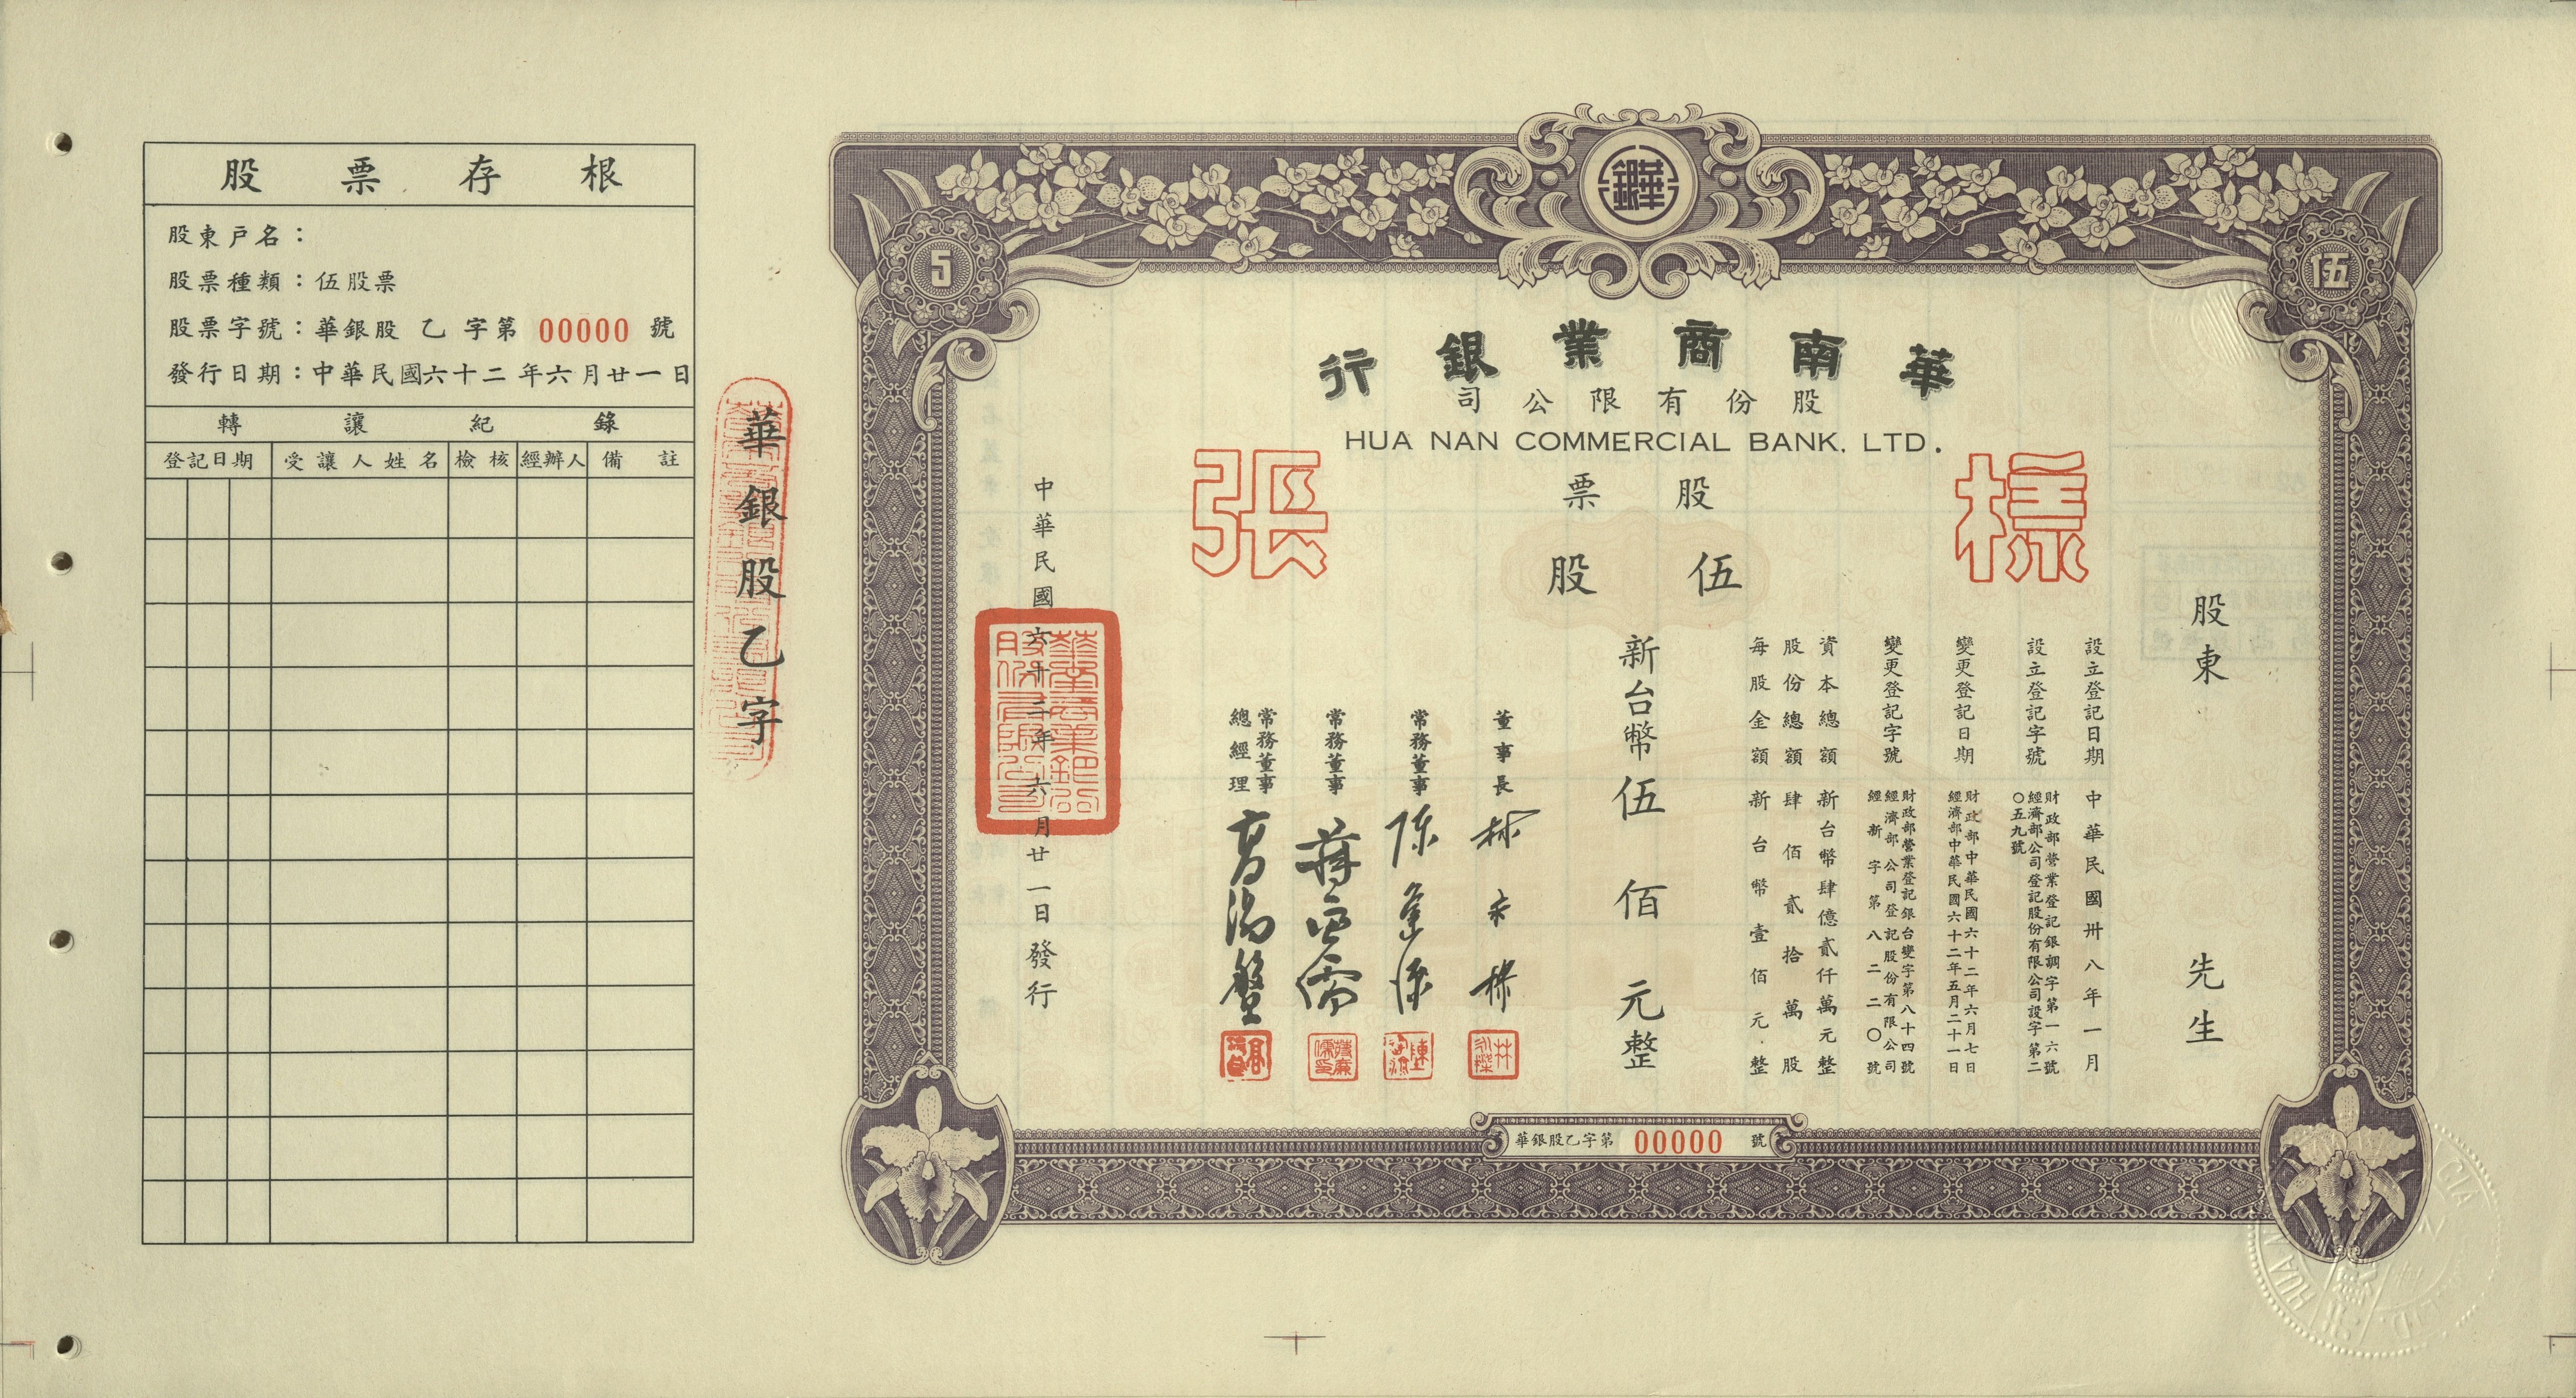 股票存根
股東戶名：
股票種類：伍股票
股票字號：華銀股 乙 字第 00000 號
發行日期：中華民國六十二年六月廿一日
轉讓紀錄
登記日期 受讓人姓名 檢核 經辦人 備註
華銀股乙字
5
伍
華南商業銀行
股份有限公司
HUA NAN COMMERCIAL BANK, LTD.
樣張
股票
伍股
股東 先生
設立登記日期 中華民國卅八年一月
設立登記字號 財政部營業登記銀調字第一六號
經濟部公司登記股份有限公司設字第二
〇五九號
變更登記日期 財政部中華民國六十二年六月七日
經濟部中華民國六十二年五月二十一日
變更登記字號 財政部營業登記銀台變字第八十四號
經濟部公司登記股份有限公司
經新字第八二二〇號
資本總額 新台幣肆億貳仟萬元整
股份總額 肆佰貳拾萬股
每股金額 新台幣壹佰元整
新台幣伍佰元整
董事長 林永樑
常務董事
常務董事 蔣廉儒
常務董事
總經理 高湯盤
中華民國六十二年六月廿一日發行
華銀股乙字第 00000 號